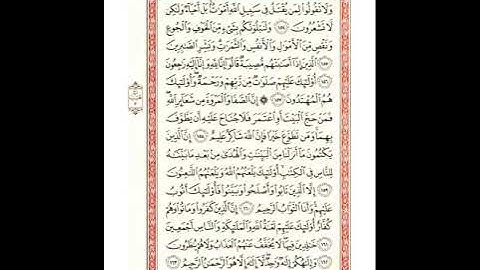 وَلَا تَقُولُوا لِمَن يُقْتَلُ فِي سَبِيلِ اللَّهِ أَمْوَاتٌ بَلْ أَحْيَاءٌ وَلَٰكِن
لَّا تَشْعُرُونَ ١٥٤ وَلَنَبْلُوَنَّكُم بِشَيْءٍ مِّنَ الْخَوْفِ وَالْجُوعِ
وَنَقْصٍ مِّنَ الْأَمْوَالِ وَالْأَنفُسِ وَالثَّمَرَاتِ وَبَشِّرِ الصَّابِرِينَ
١٥٥ الَّذِينَ إِذَا أَصَابَتْهُم مُّصِيبَةٌ قَالُوا إِنَّا لِلَّهِ وَإِنَّا إِلَيْهِ رَاجِعُونَ
١٥٦ أُولَٰئِكَ عَلَيْهِمْ صَلَوَاتٌ مِّن رَّبِّهِمْ وَرَحْمَةٌ وَأُولَٰئِكَ
هُمُ الْمُهْتَدُونَ ١٥٧ ۞ إِنَّ الصَّفَا وَالْمَرْوَةَ مِن شَعَائِرِ اللَّهِ
فَمَنْ حَجَّ الْبَيْتَ أَوِ اعْتَمَرَ فَلَا جُنَاحَ عَلَيْهِ أَن يَطَّوَّفَ
بِهِمَا وَمَن تَطَوَّعَ خَيْرًا فَإِنَّ اللَّهَ شَاكِرٌ عَلِيمٌ ١٥٨ إِنَّ الَّذِينَ
يَكْتُمُونَ مَا أَنزَلْنَا مِنَ الْبَيِّنَاتِ وَالْهُدَىٰ مِن بَعْدِ مَا بَيَّنَّاهُ
لِلنَّاسِ فِي الْكِتَابِ أُولَٰئِكَ يَلْعَنُهُمُ اللَّهُ وَيَلْعَنُهُمُ اللَّاعِنُونَ
١٥٩ إِلَّا الَّذِينَ تَابُوا وَأَصْلَحُوا وَبَيَّنُوا فَأُولَٰئِكَ أَتُوبُ
عَلَيْهِمْ وَأَنَا التَّوَّابُ الرَّحِيمُ ١٦٠ إِنَّ الَّذِينَ كَفَرُوا وَمَاتُوا وَهُمْ
كُفَّارٌ أُولَٰئِكَ عَلَيْهِمْ لَعْنَةُ اللَّهِ وَالْمَلَائِكَةِ وَالنَّاسِ أَجْمَعِينَ
١٦١ خَالِدِينَ فِيهَا لَا يُخَفَّفُ عَنْهُمُ الْعَذَابُ وَلَا هُمْ يُنظَرُونَ
١٦٢ وَإِلَٰهُكُمْ إِلَٰهٌ وَاحِدٌ لَّا إِلَٰهَ إِلَّا هُوَ الرَّحْمَٰنُ الرَّحِيمُ ١٦٣